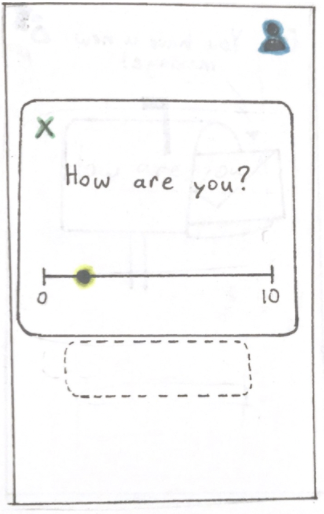 X
How are you?
0 10